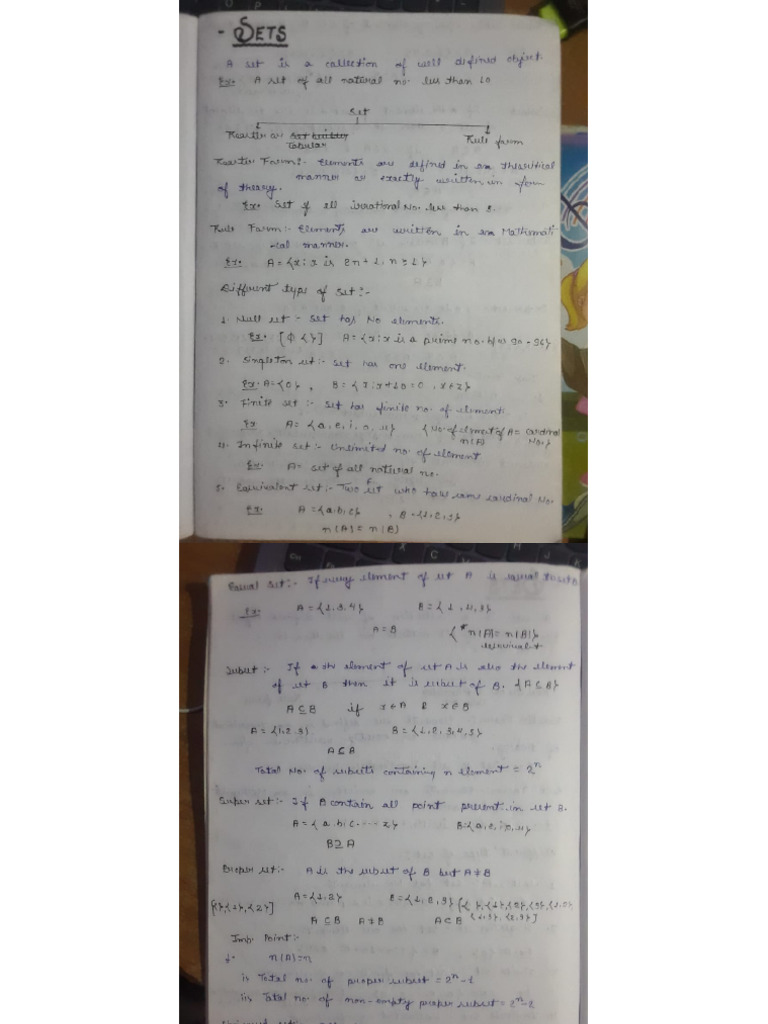 - SETS
A set is a collection of well defined object.
Ex:- A set of all natural no. less than 10
Set
Roaster or Set builder
Tabular
Rule form
Roaster Form:- Elements are defined in an theoritical
manner or exactly written in form
of theory.
Ex:- Set of all irrational No. less than 8.
Rule Form:- Elements are written in an Mathemati
-cal manner.
Ex:- A = {x : x is 2n + 1, n ≥ 1}
Different type of set:-
1. Null set - Set has No elements.
Ex:- [ϕ {}] A = {x : x is a prime no. b/w 90 - 96}
2. Singleton set:- Set has one element.
Ex:- A = {0}, B = {x : x + 10 = 0, x ∈ z}
3. Finite set :- Set has finite no. of element.
Ex A = {a, e, i, o, u} {No. of element of A = cardinal
n(A) No.}
4. Infinite set:- Unlimited no. of element
Ex:- A = set of all natural no.
5. Equivalent set:- Two set who have same cardinal No.
Ex:- A = {a, b, c} , B = {1, 2, 3}
n(A) = n(B)
Equal Set:- If every element of set A is equal to set B
Ex:- A = {1, 3, 4} B = {1, 4, 3}
A = B {* n(A) = n(B)}
equivalent
Subset :- If a the element of set A is also the element
of set B then it is subset of B. {A ⊆ B}
A ⊆ B if x ∈ A & x ∈ B
A = {1, 2, 3} B = {1, 2, 3, 4, 5}
A ⊆ A
Total No. of subsets containing n element = 2ⁿ
Super set:- If B contain all point present in set B.
A = {a, b, c ---- z} B = {a, e, i, o, u}
B ⊇ A
Proper set:- A is the subset of B but A ≠ B
A = {1, 2} B = {1, 2, 3}
[{}, {1}, {2}] [{ }, {1}, {2}, {3}, {1,2},
A ⊆ B A ≠ B A ⊂ B {1,3}, {2,3}]
Imp. Point:-
1. n(A) = n
i) Total no. of proper subset = 2ⁿ - 1
ii) Total no. of non-empty proper subset = 2ⁿ - 2